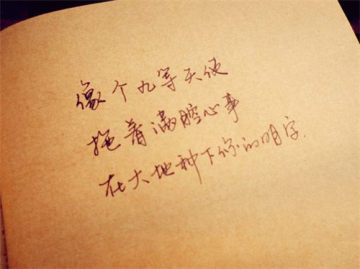 像个九等天使
拖着满腔心事
在大地种下你的名字